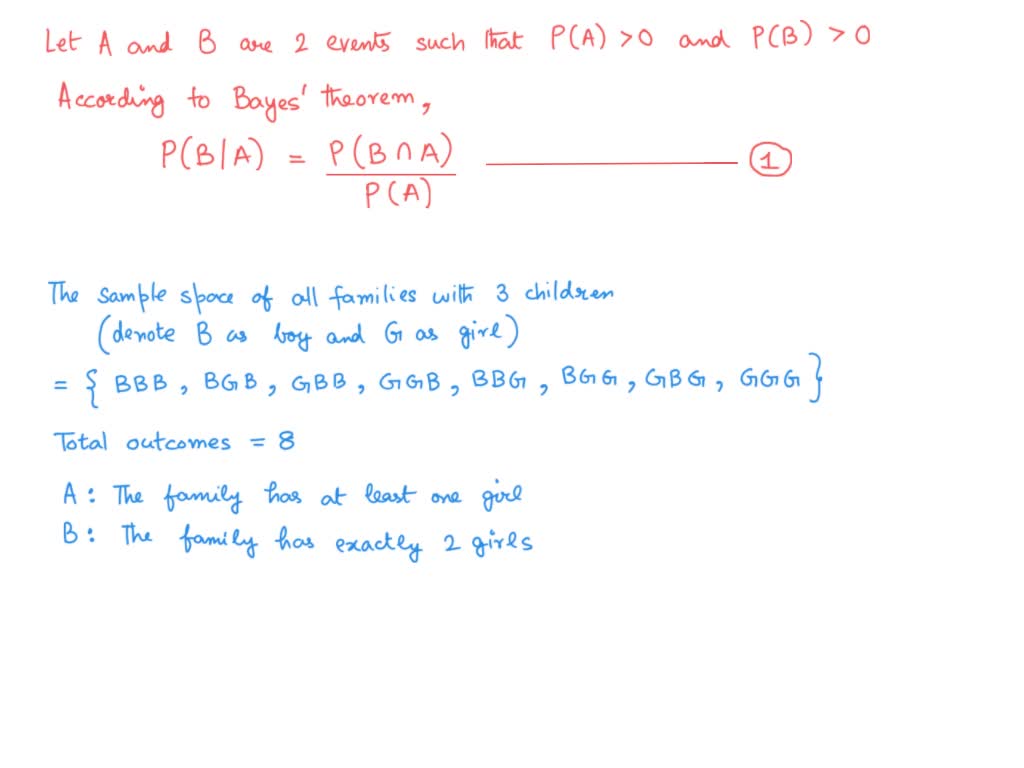 Let A and B are 2 events such that P(A) > 0 and P(B) > 0
According to Bayes' theorem,
P(B|A) = P(B ∩ A) / P(A) ——— ①
The sample space of all families with 3 children
(denote B as boy and G as girl)
= { BBB, BGB, GBB, GGB, BBG, BGG, GBG, GGG }
Total outcomes = 8
A: The family has at least one girl
B: The family has exactly 2 girls